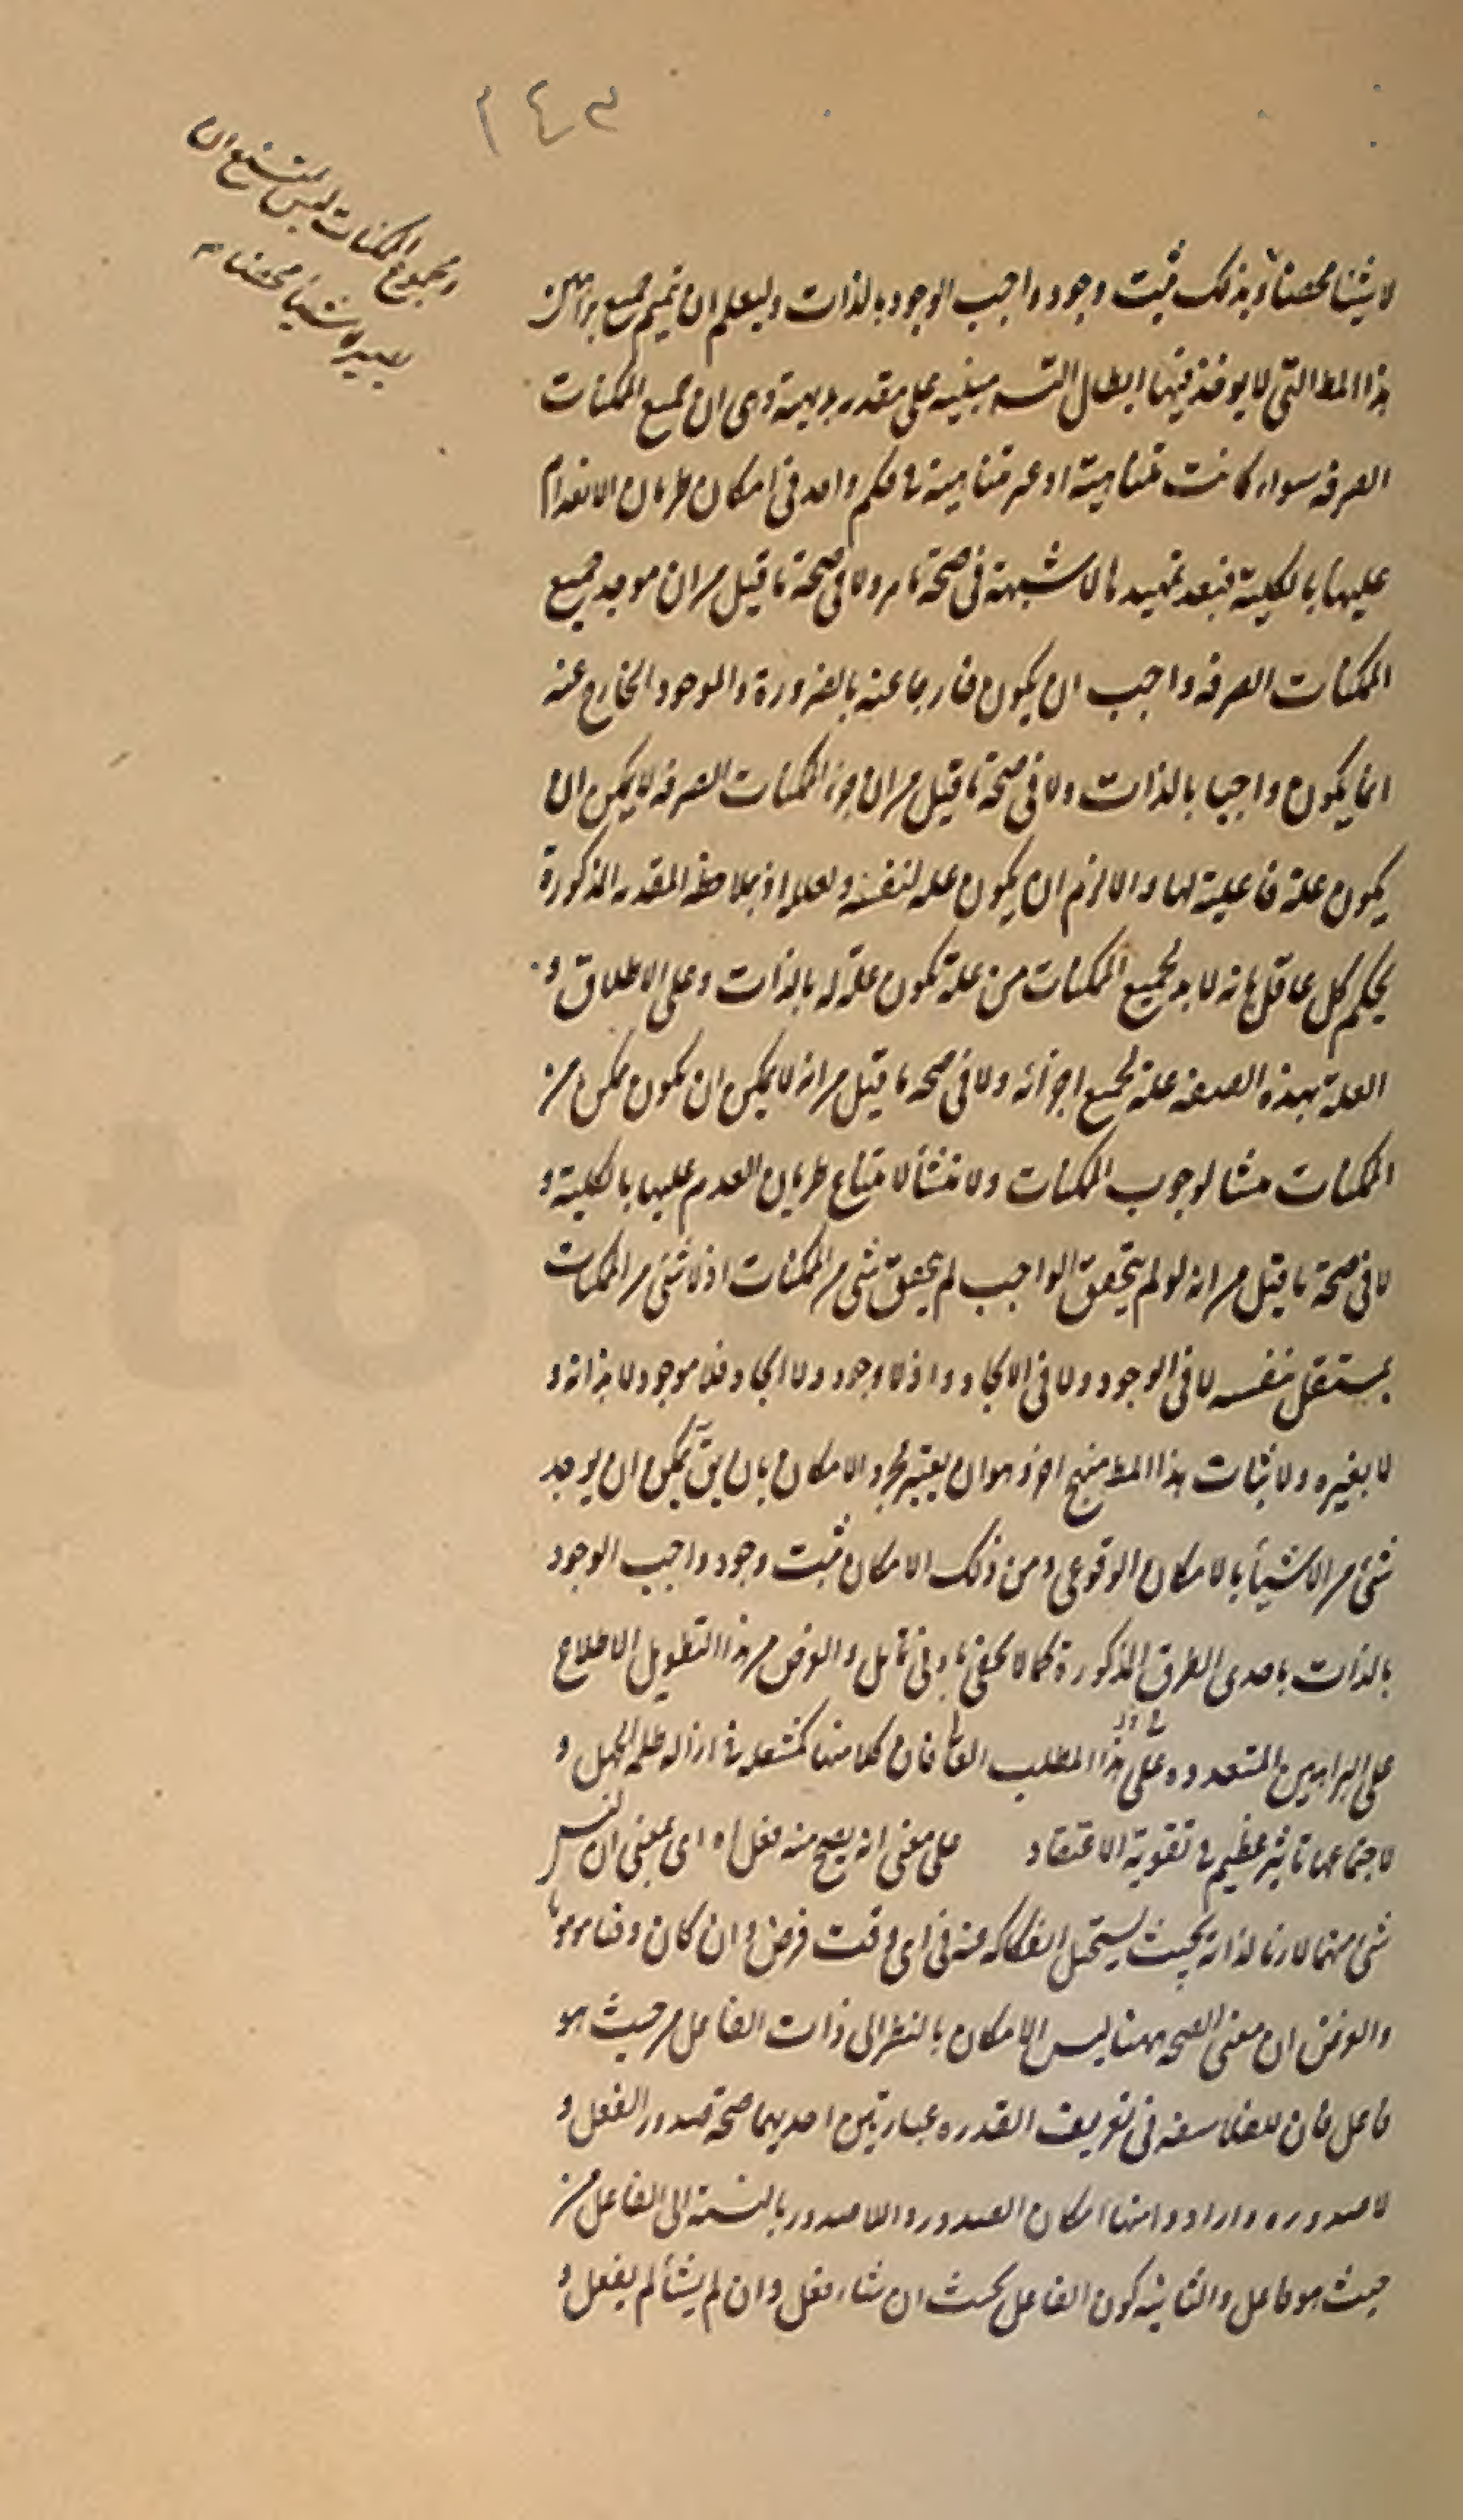 ١٤٣
ومجموع الممكنات ليس يمتنع ان
يصير لا شيئا محضا
لا شيئا محضا وبذلك ثبت وجود واجب الوجود بالذات وليعلم ان تتميم جميع براهين
هذا المط التى لا يوخذ فيها ابطال التسه مبنيه على مقدمه بديهية وهى ان جميع الممكنات
الصرفه سواء كانت متناهية او غير متناهية فى حكم واحد فى امكان طريان الانعدام
عليها بالكلية فبعد تمهيدها لا شبهة فى صحة ما مر ولا فى صحة ما قيل من ان موجد جميع
الممكنات الصرفه واجب ان يكون خارجا عنه بالضرورة والموجود الخارج عنه
انما يكون واجبا بالذات ولا فى صحة ما قيل من ان جزء الممكنات الصرفه لا يمكن ان
يكون علة فاعلية لها والا لزم ان يكون عله لنفسه ولعلله اذ بملاحظه المقدمه المذكورة
يحكم كل عاقل بانه لا بد لجميع الممكنات من علة تكون علة له بالذات وعلى الاطلاق و
العلة بهذه الصفه علة لجميع اجزائه ولا فى صحه ما قيل من انه لا يمكن ان يكون ممكن من
الممكنات منشا لوجوب الممكنات ولا منشأ لامتناع طريان العدم عليها بالكلية و
لا فى صحة ما قيل من انه لو لم يتحقق الواجب لم يتحقق شى من الممكنات اذ لا شى من الممكنات
بمستقل بنفسه لا فى الوجود ولا فى الايجاد واذ لا وجود ولا ايجاد فلا موجود لا بذاته و
لا بغيره ولاثبات هذا المط منهج اخر وهو ان يعتبر مجرد الامكان بان يق يمكن ان يوجد
شى من الاشياء بالامكان الوقوعى ومن ذلك الامكان ثبت وجود واجب الوجود
بالذات باحدى الطرق المذكورة كما لا يخفى بادنى تامل والغرض من هذا التطويل الاطلاع
على البراهين المتعدده على هذا المطلب العالى فان كلا منها كمشعلة فى ازالة ظلمة الجهل و
لاجتماعها تاثير عظيم فى تقوية الاعتقاد على معنى انه يصح منه فعل اه اى بمعنى ان ليس
شى منهما لازما لذاته بحيث يستحيل انفكاكه عنه فى اى وقت فرض وان كان وقتا موهوما
والغرض ان معنى الصحه ههنا ليس الامكان بالنظر الى ذات الفاعل من حيث هو
فاعل فان للفلاسفه فى تعريف القدره عبارتين احديهما صحة صدور الفعل و
لا صدوره وارادوا منها امكان الصدور واللاصدور بالنسبة الى الفاعل من
حيث هو فاعل والثانية كون الفاعل بحيث ان شاء فعل وان لم يشأ لم يفعل و